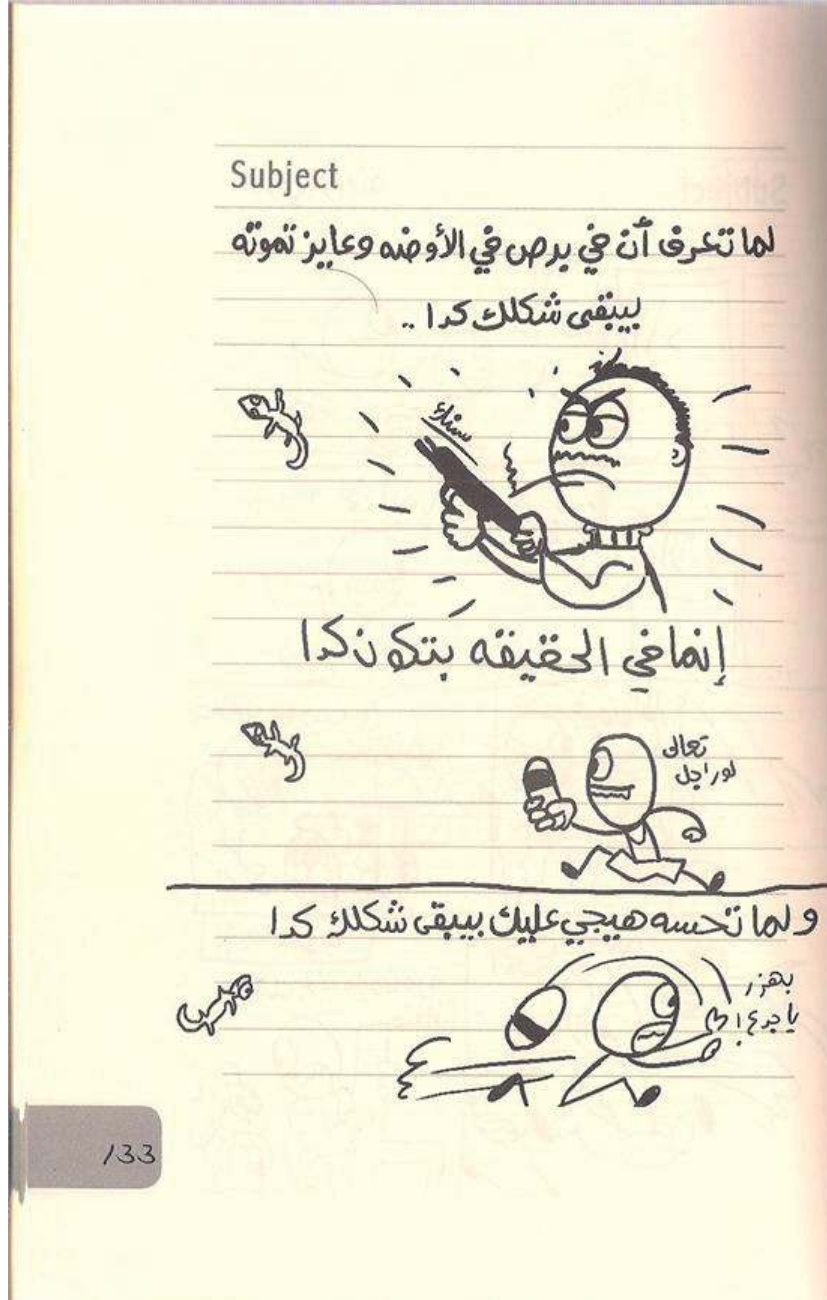 Subject
لما تعرف أن في برص في الأوضه وعايز تموته
بيبقى شكلك كدا ..
سناك
إنما في الحقيقه بتكون كدا
تعالى
لو راجل
ولما تحسه هيجي عليك بيبقى شكلك كدا
بهزر
يا جدع!
133